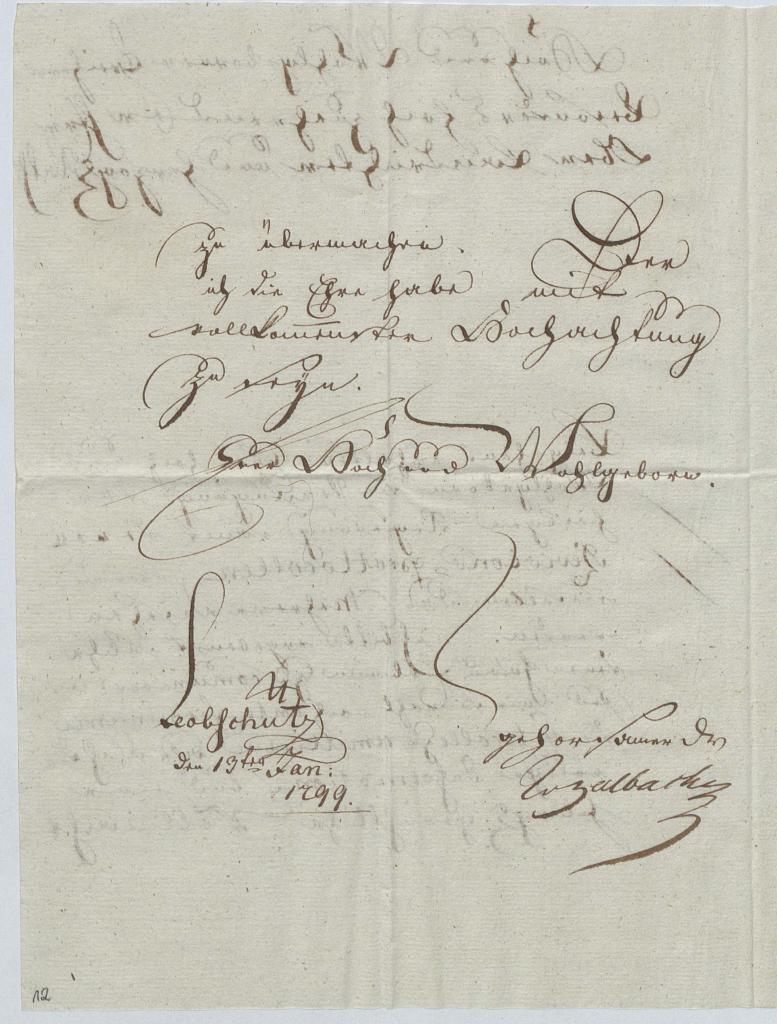 zu übermachen. Der
ich die Ehre habe mit
vollkom̅enster Hochachtung
zu seyn.
Euer Hoch und Wohlgeborn.
Leobschütz
den 13ten Jan:
1799.
gehorsamer Dr
12